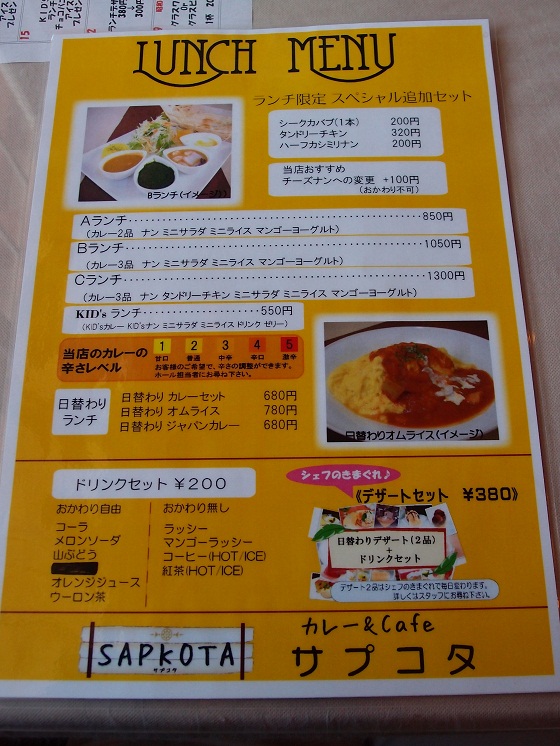 LUNCH MENU
ランチ限定 スペシャル追加セット
シークカバブ(1本) 200円
タンドリーチキン 320円
ハーフカシミリナン 200円
当店おすすめ
チーズナンへの変更 +100円
(おかわり不可)
Bランチ(イメージ)
Aランチ 850円
(カレー2品 ナン ミニサラダ ミニライス マンゴーヨーグルト)
Bランチ 1050円
(カレー3品 ナン ミニサラダ ミニライス マンゴーヨーグルト)
Cランチ 1300円
(カレー3品 ナン タンドリーチキン ミニサラダ ミニライス マンゴーヨーグルト)
KID's ランチ 550円
(KID'sカレー KID'sナン ミニサラダ ミニライス ドリンク ゼリー)
当店のカレーの
辛さレベル
1 2 3 4 5
甘口 普通 中辛 辛口 激辛
お客様のご希望で、辛さの調整ができます。
ホール担当者にお尋ね下さい。
日替わり
ランチ
日替わり カレーセット 680円
日替わり オムライス 780円
日替わり ジャパンカレー 680円
日替わりオムライス(イメージ)
ドリンクセット ¥200
おかわり自由
コーラ
メロンソーダ
山ぶどう
オレンジジュース
ウーロン茶
おかわり無し
ラッシー
マンゴーラッシー
コーヒー(HOT/ICE)
紅茶(HOT/ICE)
シェフのきまぐれ♪
《デザートセット ¥380》
日替わりデザート(2品)
+
ドリンクセット
デザート2品はシェフのきまぐれで毎日変わります。
詳しくはスタッフにお尋ね下さい。
SAPKOTA
サプコタ
カレー&Cafe
サプコタ